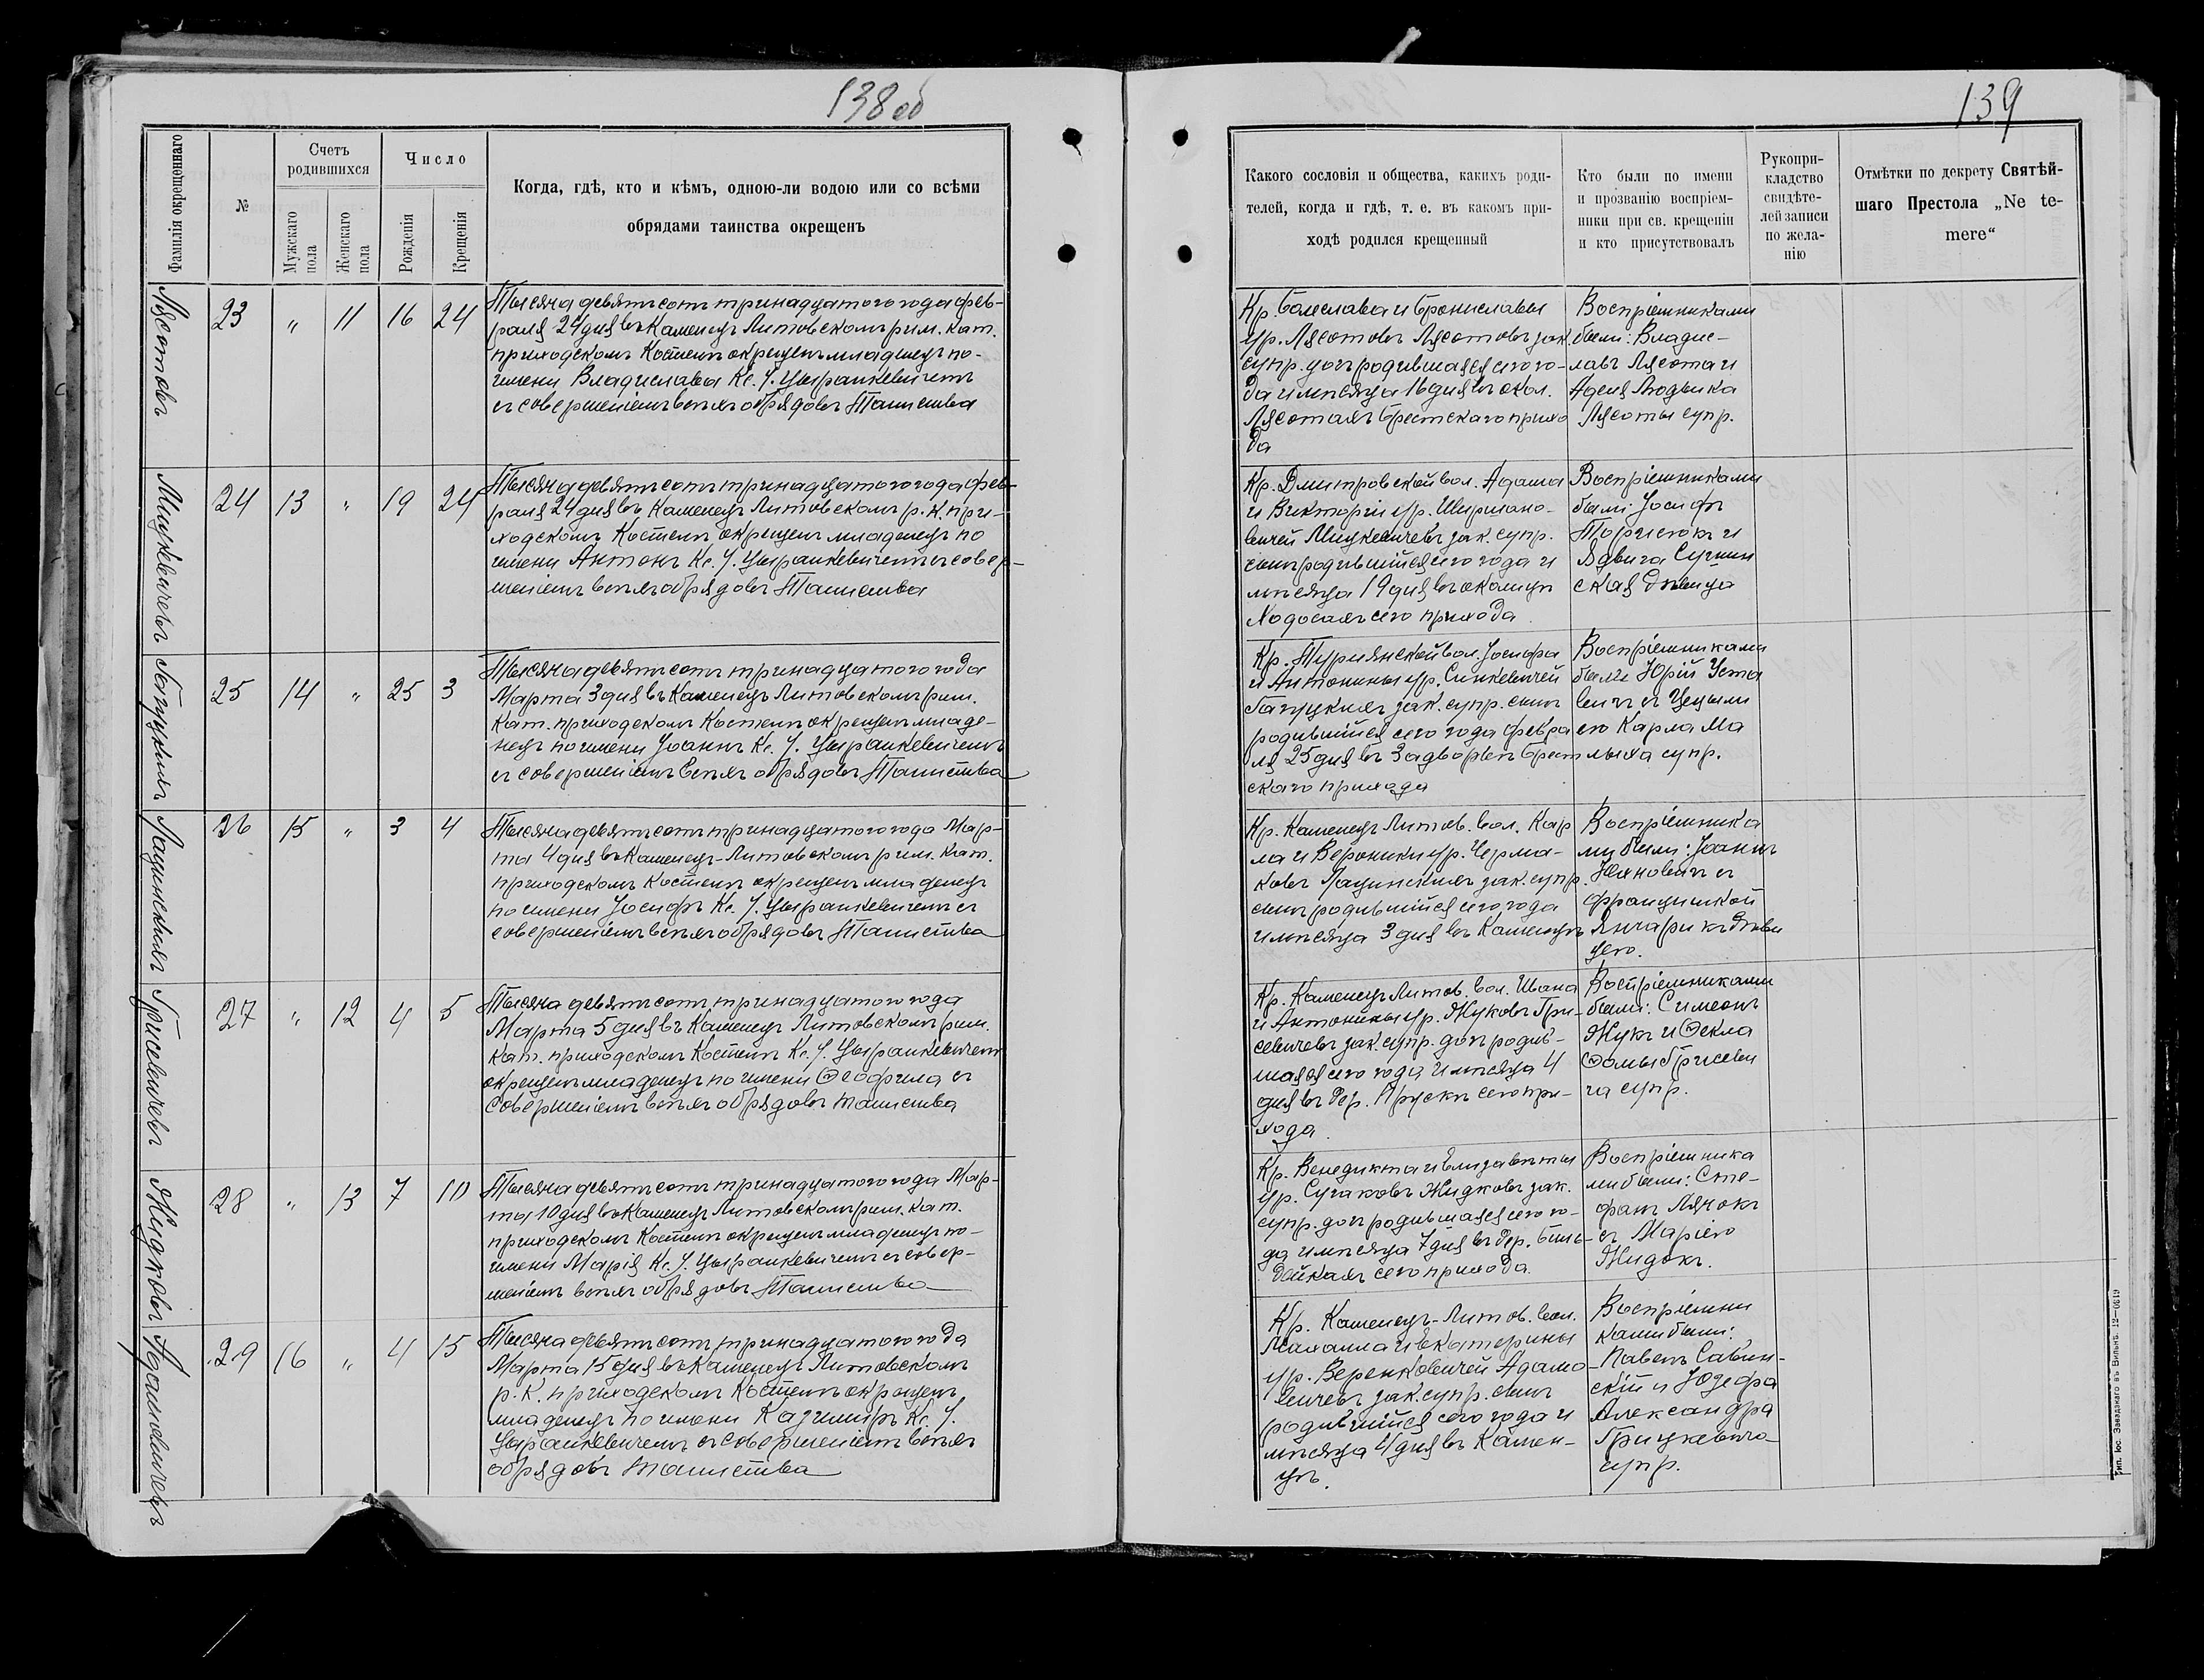 138 об
Фамилія окрещеннаго
№
Счетъ
родившихся
Мужскаго
пола
Женскаго
пола
Число
Рожденія
Крещенія
Когда, гдѣ, кто и кѣмъ, одною-ли водою или со всѣми
обрядами таинства окрещенъ
Лясотовъ
23 „ 11 16 24
Тысяча девятьсотъ тринадцатого года фев-
раля 24 дня въ Каменецъ Литовскомъ рим. кат.
приходскомъ Костелѣ окрещенъ младенецъ по-
имени Владислава Кс. І. Цыранкевичемъ
съ совершеніемъ всѣхъ обрядовъ Таинства
Мицкевичевъ
24 13 „ 19 24
Тысяча девятьсотъ тринадцатого года фев-
раля 24 дня въ Каменецъ Литовскомъ р. к. при-
ходскомъ Костелѣ окрещенъ младенецъ по
имени Антонъ Кс. І. Цыранкевичемъ съ совер-
шеніемъ всѣхъ обрядовъ Таинства
25 14 „ 25 3
Тысяча девятьсотъ тринадцатого года
Марта 3 дня въ Каменецъ Литовскомъ рим.
кат. приходскомъ Костелѣ окрещенъ младе-
нецъ по имени Іоаннъ Кс. І. Цыранкевичемъ
съ совершеніемъ всѣхъ обрядовъ Таинства
Лацинскихъ
26 15 „ 3 4
Тысяча девятьсотъ тринадцатого года Мар-
та 4 дня въ Каменецъ-Литовскомъ рим. кат.
приходскомъ Костелѣ окрещенъ младенецъ
по имени Іосифъ Кс. І. Цыранкевичемъ съ
совершеніемъ всѣхъ обрядовъ Таинства
Грисевичевъ
27 „ 12 4 5
Тысяча девятьсотъ тринадцатого года
Марта 5 дня въ Каменецъ Литовскомъ рим.
кат. приходскомъ Костелѣ Кс. І. Цыранкевичемъ
окрещенъ младенецъ по имени Ѳеофила съ
совершеніемъ всѣхъ обрядовъ таинства
Жидковъ
28 „ 13 7 10
Тысяча девятьсотъ тринадцатого года Мар-
та 10 дня въ Каменецъ Литовскомъ рим. кат.
приходскомъ Костелѣ окрещенъ младенецъ по-
имени Марія Кс. І. Цыранкевичемъ съ совер-
шеніемъ всѣхъ обрядовъ Таинства
Адамовичевъ
29 16 „ 4 15
Тысяча девятьсотъ тринадцатого года
Марта 15 дня въ Каменецъ Литовскомъ
р. К. приходскомъ Костелѣ окрещенъ
младенецъ по имени Казимиръ Кс. І.
Цыранкевичемъ съ совершеніемъ всѣхъ
обрядовъ таинства
139
Какого сословія и общества, какихъ роди-
телей, когда и гдѣ, т. е. въ какомъ при-
ходѣ родился крещенный
Кто были по имени
и прозванію воспріем-
ники при св. крещеніи
и кто присутствовалъ
Рукопри-
кладство
свидѣте-
лей записи
по жела-
нію
Отмѣтки по декрету Святѣй-
шаго Престола „Ne te-
mere“
Кр. Болеслава и Брониславы
ур. Лясотовъ Лясотовъ зак.
супр. дочь родившаяся сего го-
да и мѣсяца 16 дня въ окол.
Лясотахъ Брестскаго прихо
да
Воспріемниками
были: Владис-
лавъ Лясота и
Аделя Людвика
Лясоты супр.
Кр. Дмитровской вол. Адама
и Викторіи ур.
Мицкевичевъ зак. супр.
сынъ родившійся сего года и
мѣсяца 19 дня въ околицѣ
Ходосахъ сего прихода
Воспріемниками
были: Іосифъ
и
Ядвига
ская дѣвица
Кр. Турнянской вол. Іосифа
и Антонины ур. Синкевичей
зак. супр. сынъ
родившійся сего года февра
ля 25 дня въ Задворьѣ Брест
скаго прихода
Воспріемниками
были Юрій Уста
вичъ съ
ею Карла Ма
лыха супр.
Кр. Каменецъ Литов. вол. Кар
ла и Вероники ур. Черма-
ковъ Лацинскихъ зак. супр.
сынъ родившійся сего года
и мѣсяца 3 дня въ Каменцѣ
Воспріемника
ми были: Іоаннъ
Юхновичъ съ
Францишкой
дѣви
цею.
Кр. Каменецъ Литов. вол. Ивана
и Антонины ур. Жуковъ Гри-
севичевъ зак. супр. дочь родив-
шаяся сего года и мѣсяца 4
дня въ дер. Прускѣ сего при-
хода.
Воспріемниками
были: Симеонъ
Жукъ и Ѳекла
Ѳомы Грисеви
ча супр.
Кр. Венедикта и Елизаветы
ур. Сучаковъ Жидковъ зак.
супр. дочь родившаяся сего го-
да и мѣсяца 7 дня въ дер.
сего прихода.
Воспріемника
ми были: Сте-
фанъ Лячокъ
съ Маріею
Жидокъ.
Кр. Каменецъ-Литов. вол.
Михаила и Екатерины
ур. Веренковичей Адамо-
вичевъ зак. супр. сынъ
родившійся сего года и
мѣсяца 4 дня въ Камен-
цѣ.
Воспріемни
ками были:
Павелъ Савин-
скій и Юзефа
Александра
Грицкевича
супр.
Тип. Іос. Завадзкаго въ Вильнѣ.